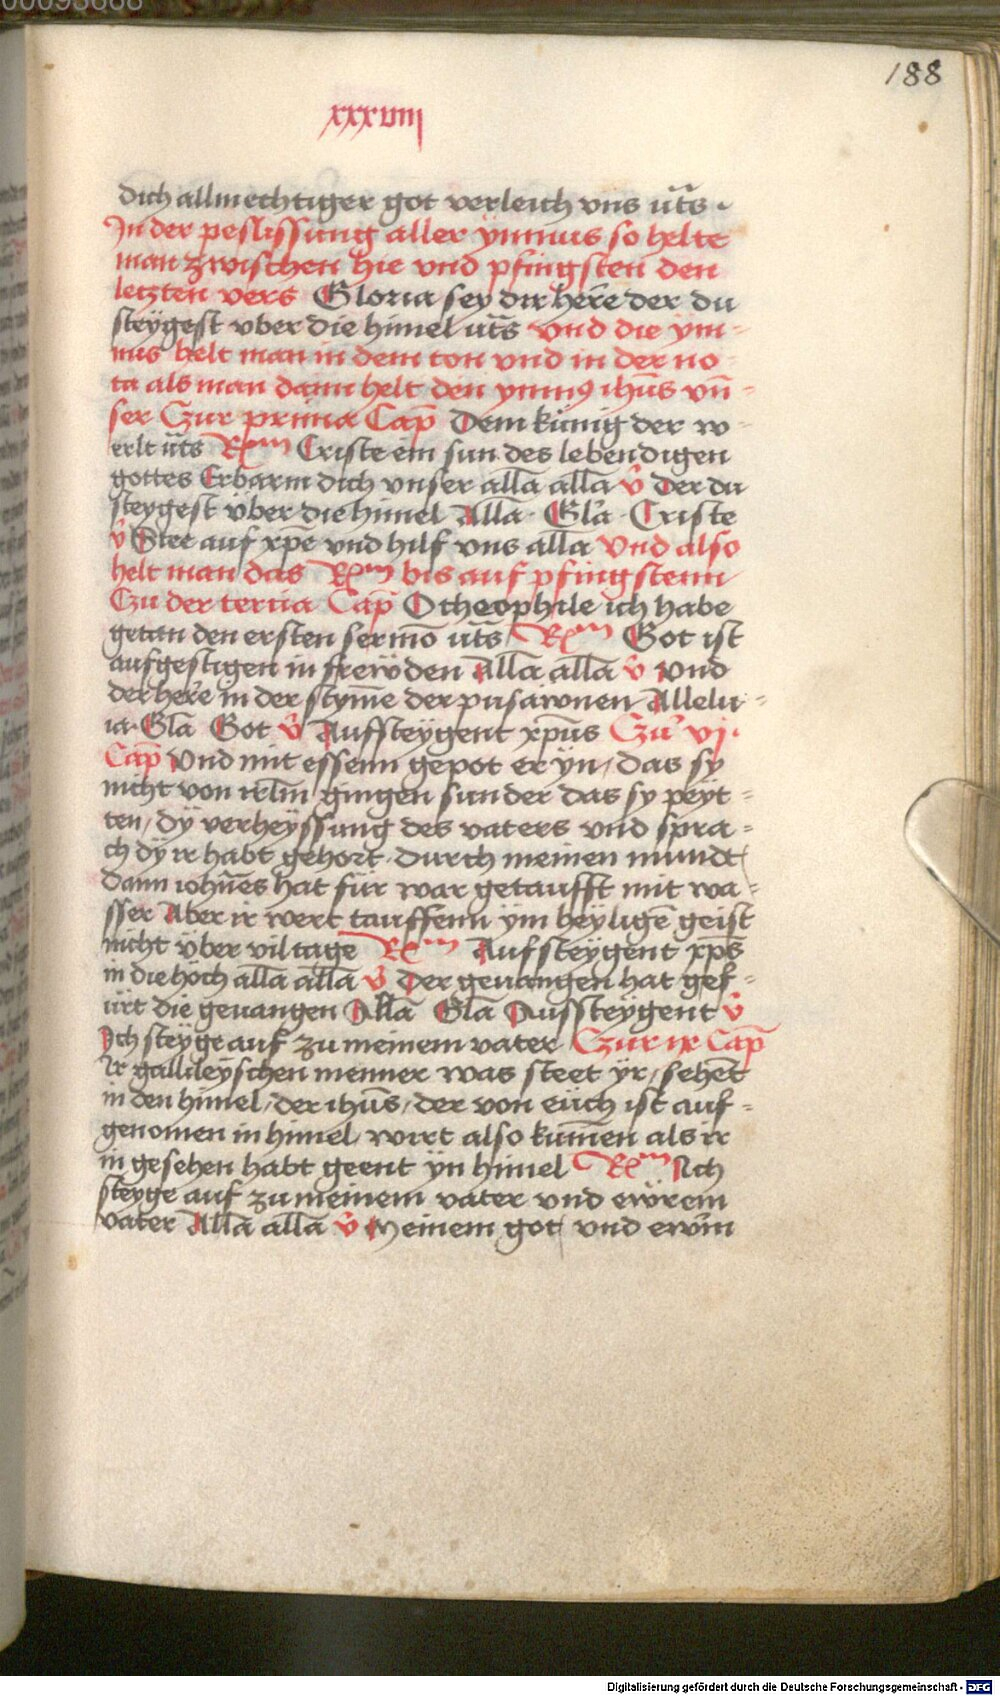 00093668
188
xxxviij
dich allmechtiger got verleich vns ut̄s ·
In der peslissung aller ÿmnus so helte
man zwischen hie vnd pfingsten den
letzten vers Gloria sey dir her̄e der du
steÿgest vber die himel ut̄s vnd die ÿm-
nus helt man in dem ton vnd in der no-
ta als man dann helt den ymnꝰ ihūs vn̄-
ser Czur prima Cap̄ Dem kúnig der w-
erlt ut̄s R̃m Criste ein sun des lebendigen
gottes Erbarm dich vnser all̄a all̄a v̊ Der du
steygest über die himel All̄a · Gl̄a · Criste
v̊ Stee auf xp̄e vnd hilf vns all̄a Vnd also
helt man das R̃m bis auf pfingstenn
Czu der tertia Cap̄ O theophile ich habe
getan den ersten sermō ut̄s R̃m Got ist
aufgestigen in frewden All̄a all̄a v̊ Vnd
der her̄e in der stym̄e der pusawnen Allelu-
ia · Gl̄a Got v̊ Auffsteÿgent xp̄us Czu vj ·
Cap̄ Vnd mit essenn gepot er ÿn / das sy
nicht von irl̄m gingen sunder das sy peyt-
ten / dÿ verheÿssung des vaters vnd spra-
ch dÿ ir habt gehort · durch meinen mundt
dann ioh̄nes hat für war getaufft mit wa-
sser Aber ir wert tauffenn ÿm heÿligē geist
nicht über vil tage R̃m Aufsteÿgent xp̄s
in die höch all̄a all̄a v̊ Der geuangen hat gef-
ürt die geuangen All̄a Gl̄a Aufsteÿgent v̊
Ich steÿge auf zu meinem vater Czur ix Cap̄
Ir gallileÿschen menner was steet ÿr / sehēt
in den himel / der ihūs / der von eüch ist auf-
genomen in himel / wirt also kum̄en als ir
in gesehen habt geent ÿn himel R̃m Ich
steyge auf zu meinem vater vnd ewrem
vater All̄a all̄a v̊ Meinem got / vnd ewr̄m
Digitalisierung gefördert durch die Deutsche Forschungsgemeinschaft - DFG